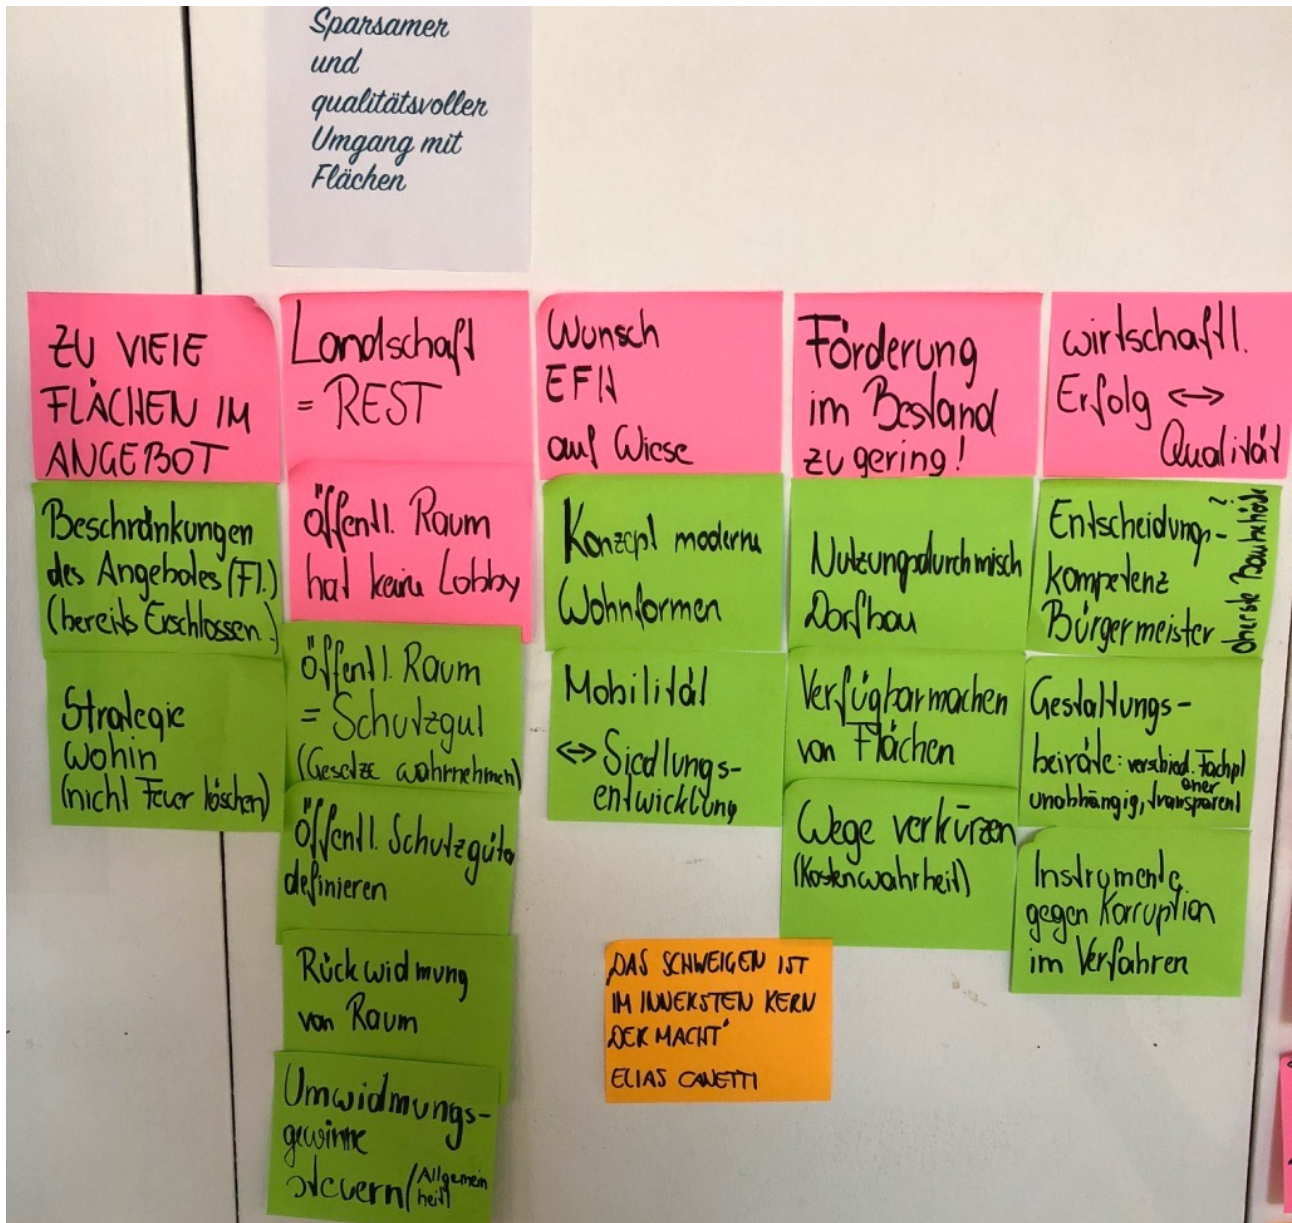 Sparsamer
und
qualitätsvoller
Umgang mit
Flächen
ZU VIELE
FLÄCHEN IM
ANGEBOT
Beschränkungen
des Angebotes (Fl.)
(bereits Erschlossen.)
Strategie
wohin
(nicht Feuer löschen)
Landschaft
= REST
öffentl. Raum
hat keine Lobby
öffentl. Raum
= Schutzgut
(Gesetze wahrnehmen)
Öffentl. Schutzgüter
definieren
Rückwidmung
von Raum
Umwidmungs-
gewinne
steuern (Allgemein
heit)
Wunsch
EFH
auf Wiese
Konzept moderne
Wohnformen
Mobilität
<=> Siedlungs-
entwicklung
Förderung
im Bestand
zu gering!
Nutzungsdurchmisch
Dorfbau
Verfügbarmachen
von Flächen
Wege verkürzen
(Kostenwahrheit)
wirtschaftl.
Erfolg <=>
Qualität
Entscheidungs-
kompetenz
Bürgermeister
oberste Baubehörde?
Gestaltungs-
beiräte: verschied. Fachpl
aner
unabhängig, transparent
Instrumente
gegen Korruption
im Verfahren
„DAS SCHWEIGEN IST
IM INNERSTEN KERN
DER MACHT“
ELIAS CANETTI